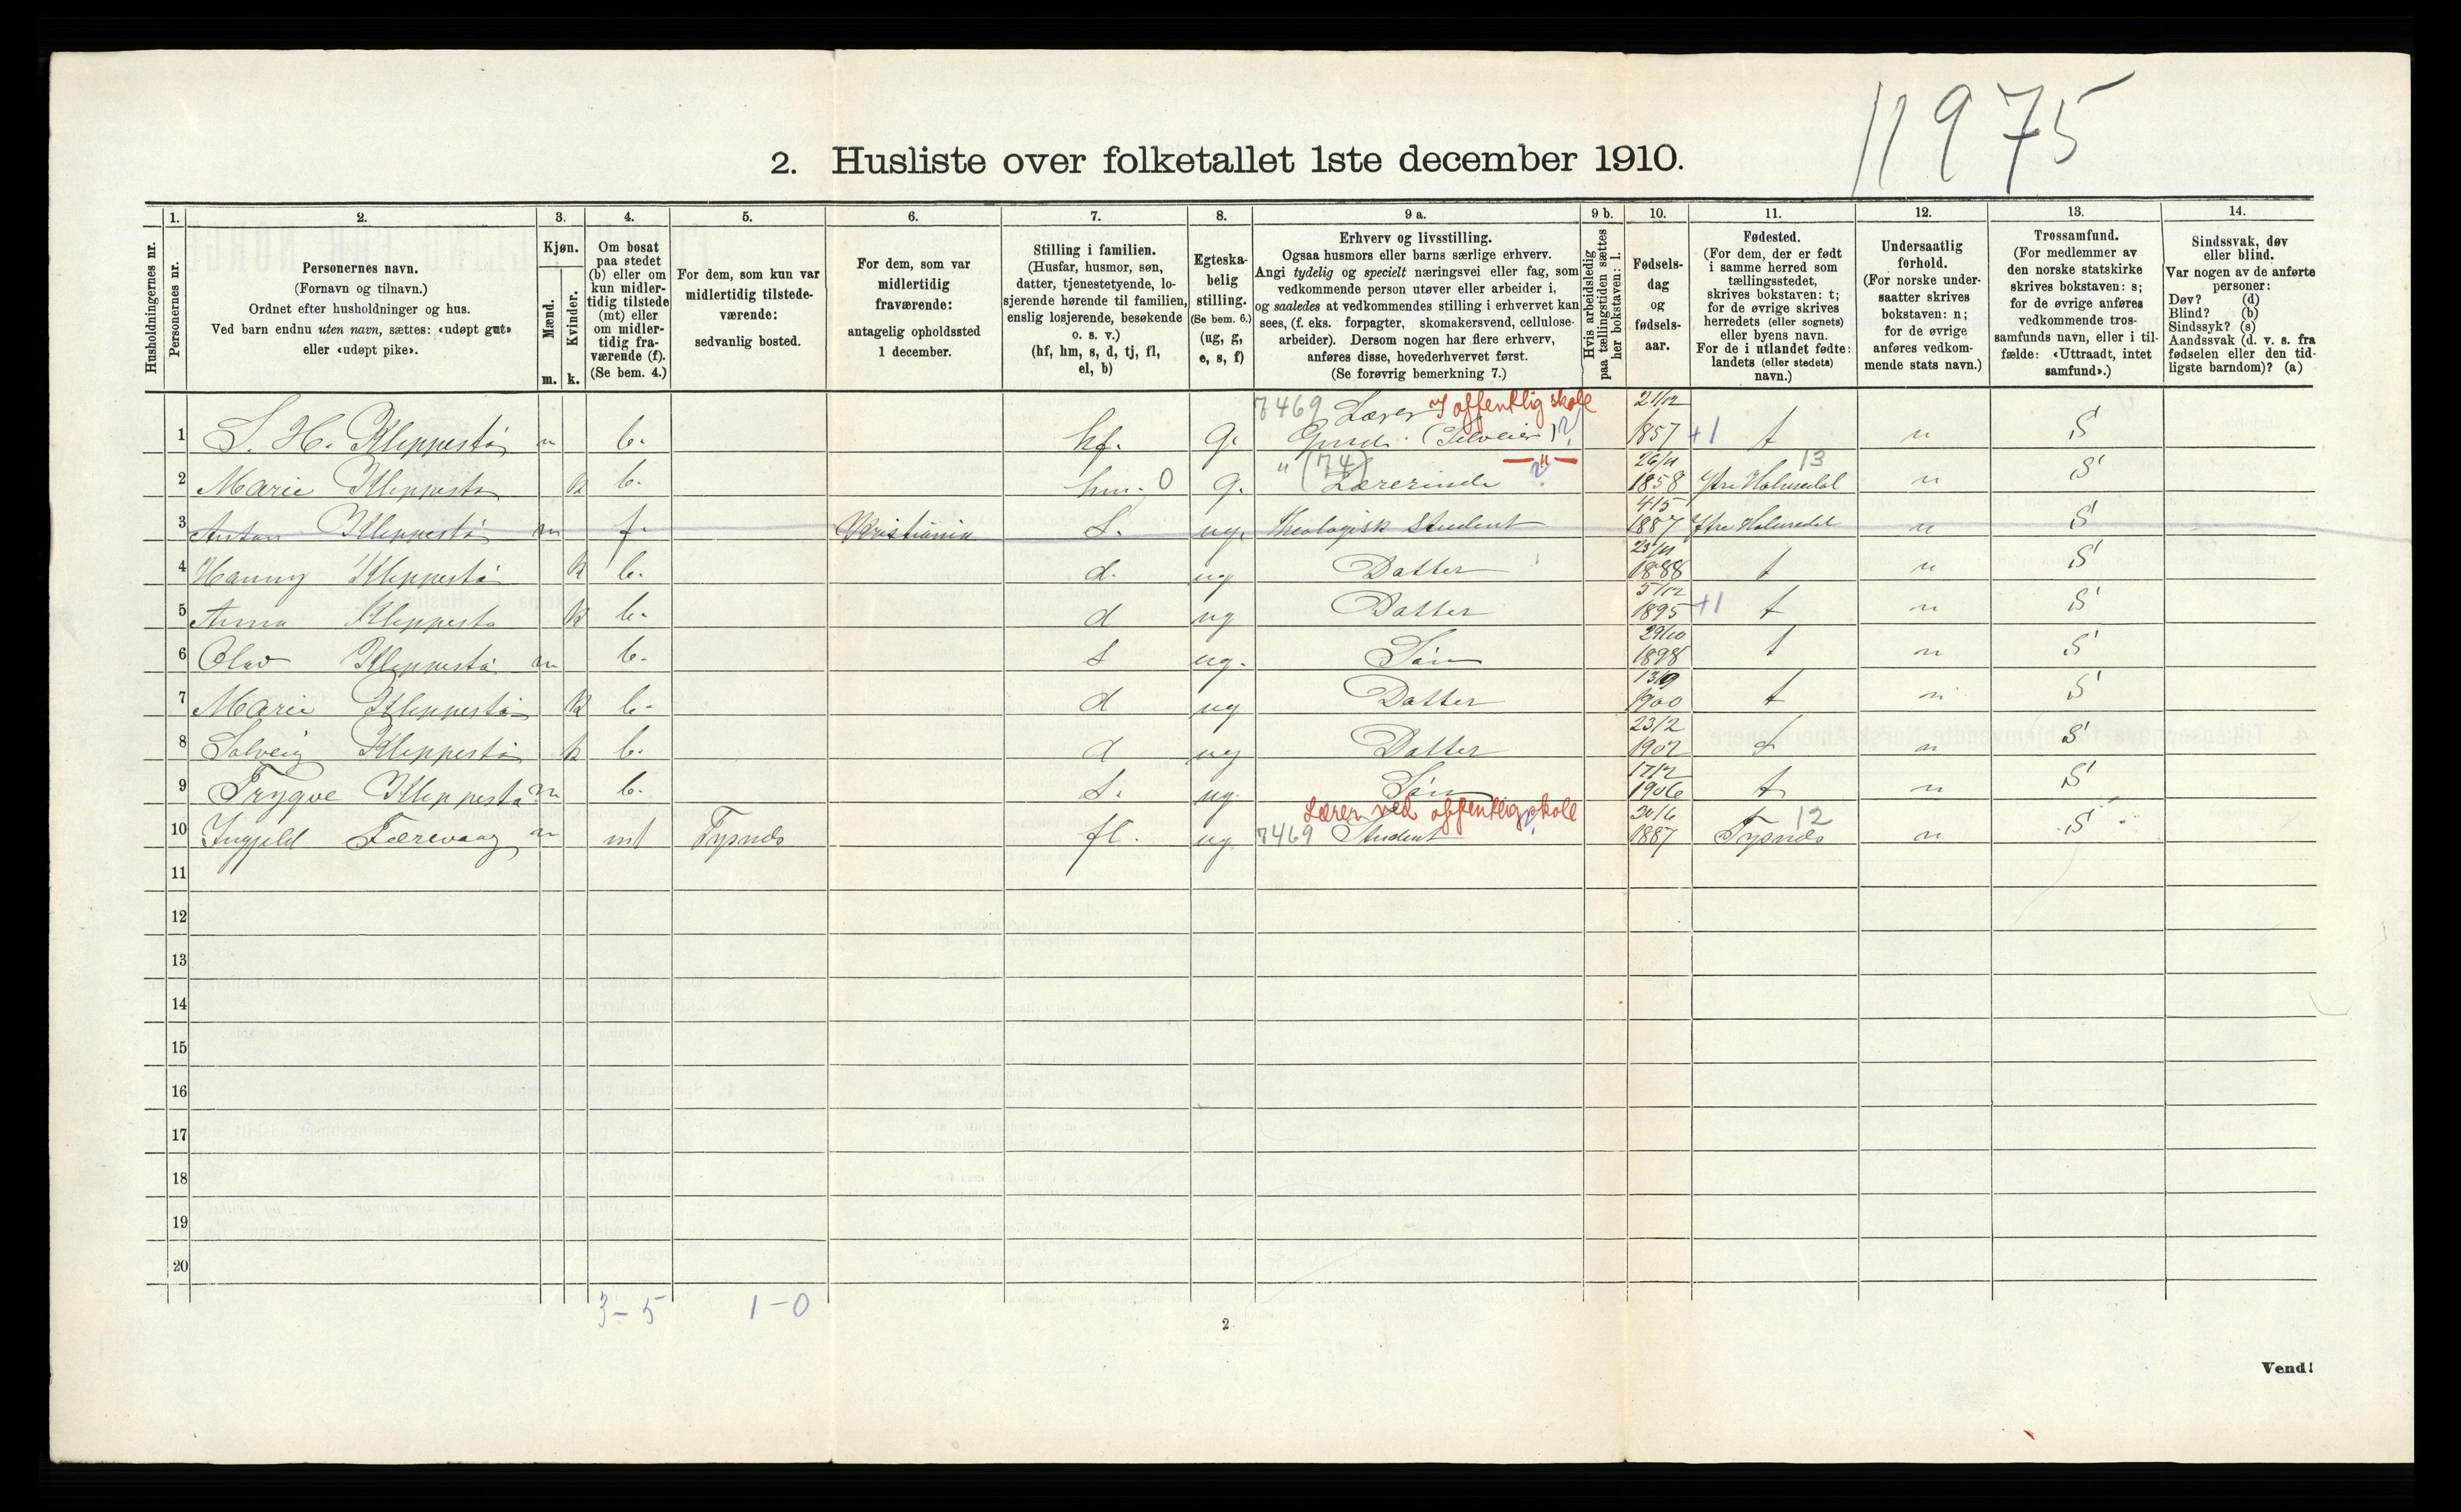 11975
2. Husliste over folketallet 1ste december 1910.
1. 2. 3. 4. 5. 6. 7. 8. 9 a. 9 b. 10. 11. 12. 13. 14.
Husholdningernes nr.
Personernes nr.
Personernes navn.
(Fornavn og tilnavn.)
Ordnet efter husholdninger og hus.
Ved barn endnu uten navn, sættes: «udøpt gut»
eller «udøpt pike».
Kjøn.
Mænd.
Kvinder.
m. k.
Om bosat
paa stedet
(b) eller om
kun midler-
tidig tilstede
(mt) eller
om midler-
tidig fra-
værende (f).
(Se bem. 4.)
For dem, som kun var
midlertidig tilstede-
værende:
sedvanlig bosted.
For dem, som var
midlertidig
fraværende:
antagelig opholdssted
1 december.
Stilling i familien.
(Husfar, husmor, søn,
datter, tjenestetyende, lo-
sjerende hørende til familien,
enslig losjerende, besøkende
o. s. v.)
(hf, hm, s, d, tj, fl,
el, b)
Egteska-
belig
stilling.
(Se bem. 6.)
(ug, g,
e, s, f)
Erhverv og livsstilling.
Ogsaa husmors eller barns særlige erhverv.
Angi tydelig og specielt næringsvei eller fag, som
vedkommende person utøver eller arbeider i,
og saaledes at vedkommendes stilling i erhvervet kan
sees, (f. eks. forpagter, skomakersvend, cellulose-
arbeider). Dersom nogen har flere erhverv,
anføres disse, hovederhvervet først.
(Se forøvrig bemerkning 7.)
Hvis arbeidsledig
paa tællingstiden sættes
her bokstaven: l.
Fødsels-
dag
og
fødsels-
aar.
Fødested.
(For dem, der er født
i samme herred som
tællingsstedet,
skrives bokstaven: t;
for de øvrige skrives
herredets (eller sognets)
eller byens navn.
For de i utlandet fødte:
landets (eller stedets)
navn.)
Undersaatlig
forhold.
(For norske under-
saatter skrives
bokstaven: n;
for de øvrige
anføres vedkom-
mende stats navn.)
Trossamfund.
(For medlemmer av
den norske statskirke
skrives bokstaven: s;
for de øvrige anføres
vedkommende tros-
samfunds navn, eller i til-
fælde: «Uttraadt, intet
samfund».)
Sindssvak, døv
eller blind.
Var nogen av de anførte
personer:
Døv? (d)
Blind? (b)
Sindssyk? (s)
Aandssvak (d. v. s. fra
fødselen eller den tid-
ligste barndom)? (a)
7469 Lærer I offentlig skole 21/12
1 S. H. Kleppestø m b. hf. g. (Selveier)? 1857 +1 t n S
" (74) —"— 26/11 13
2 Marie Kleppestø k b. hm. 0 g. Lærerinde ? 1858 Ytre Holmedal n S
4/5
3 Anton Kleppestø m f. Kristiania s. ug. Theologisk Student 1887 Ytre Holmedal n S
23/11
4 Hanny Kleppestø k b. d. ug Datter 1888 t n S
5/12
5 Anna Kleppestø k b. d ug Datter 1895 +1 t n S
29/10
6 Olav Kleppestø m b. s ug. Søn 1898 t n S
13/9
7 Marie Kleppestø k b. d ug Datter 1900 t n S
23/2
8 Solveig Kleppestø k b. d ug Datter 1902 t n S
17/2
9 Trygve Kleppestø m b. s. ug. Søn 1906 t n S
Lærer ved offentlig skole 30/6 12
10 Ingjeld Færevaag m mt Tysnes fl. ug. 7469 Student ? 1887 Tysnes n S
11
12
13
14
15
16
17
18
19
20
3-5 1-0
2
Vend!